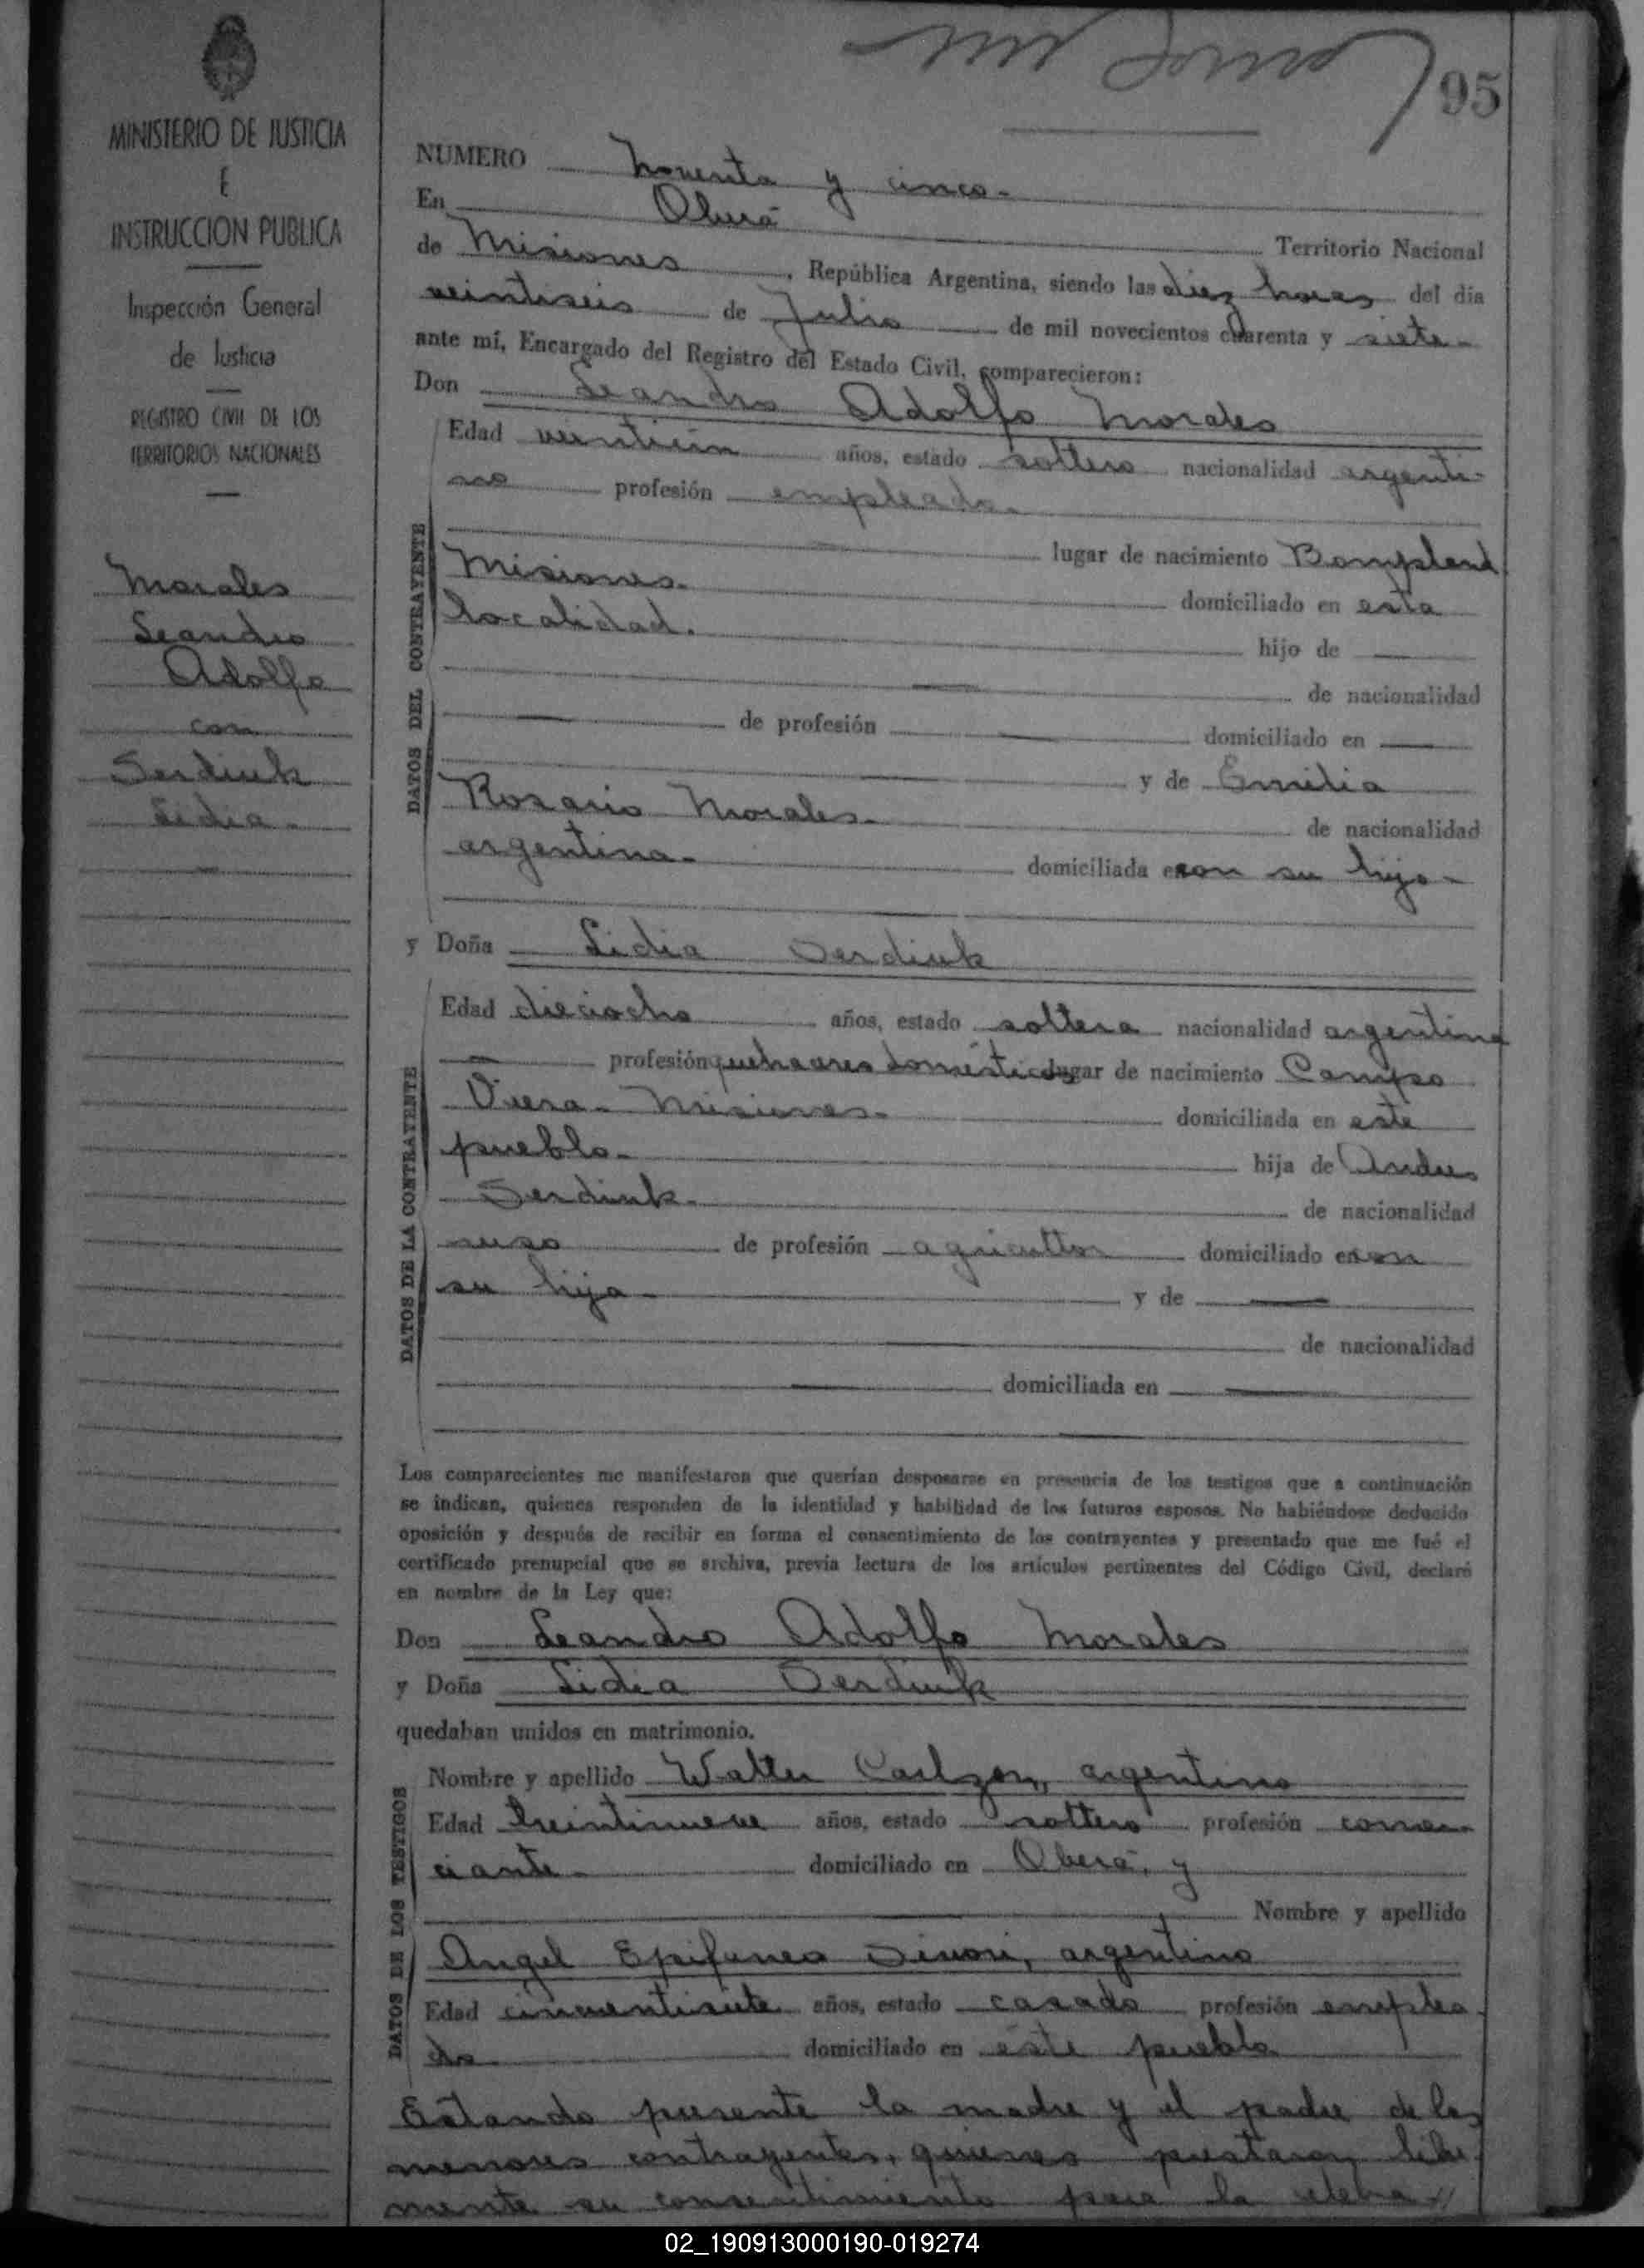 95
MINISTERIO DE JUSTICIA
E
INSTRUCCION PUBLICA
Inspección General
de Justicia
REGISTRO CIVIL DE LOS
TERRITORIOS NACIONALES
Morales
Leandro
Adolfo
con
Serdiuk
Lidia.
NUMERO noventa y cinco.
En Oberá Territorio Nacional
de Misiones, República Argentina, siendo las diez horas del día
veintiseis de Julio de mil novecientos cuarenta y siete.
ante mí, Encargado del Registro del Estado Civil, comparecieron:
Don Leandro Adolfo Morales
DATOS DEL CONTRAYENTE
Edad años, estado soltero nacionalidad argenti-
no profesión empleado.
lugar de nacimiento Bompland
Misiones. domiciliado en esta
localidad. hijo de
de nacionalidad
de profesión domiciliado en
y de Emilia
Rosario Morales. de nacionalidad
argentina. domiciliada con su hijo.
y Doña Lidia Serdiuk
DATOS DE LA CONTRAYENTE
Edad dieciocho años, estado soltera nacionalidad argentina
profesión quehaceres domésticos lugar de nacimiento Campo
Viera. Misiones. domiciliada en este
pueblo. hija de Andres
Serdiuk. de nacionalidad
ruso de profesión agricultor domiciliado con
su hija. y de
de nacionalidad
domiciliada en
Los comparecientes me manifestaron que querían desposarse en presencia de los testigos que a continuación
se indican, quienes responden de la identidad y habilidad de los futuros esposos. No habiéndose deducido
oposición y después de recibir en forma el consentimiento de los contrayentes y presentado que me fué el
certificado prenupcial que se archiva, previa lectura de los artículos pertinentes del Código Civil, declaré
en nombre de la Ley que:
Don Leandro Adolfo Morales
y Doña Lidia Serdiuk
quedaban unidos en matrimonio.
DATOS DE LOS TESTIGOS
Nombre y apellido Walter Carlzon, argentino
Edad treintinueve años, estado soltero profesión comer
ciante. domiciliado en Oberá, y
Nombre y apellido
Angel Epifaneo argentino
Edad cincuentisiete años, estado casado profesión emplea
do domiciliado en este pueblo
Estando presente la madre y el padre de los
menores contrayentes, quienes prestaron libre
mente su consentimiento para la celebra//
02_190913000190-019274